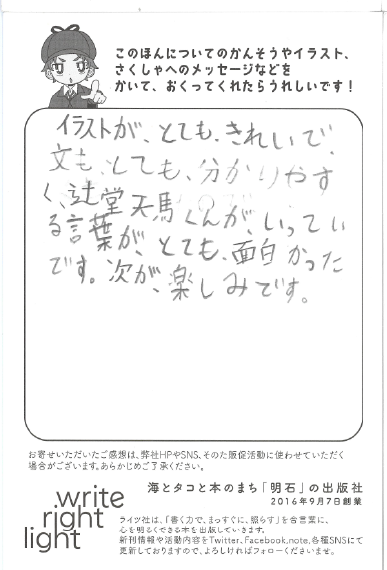 このほんについてのかんそうやイラスト、
さくしゃへのメッセージなどを
かいて、おくってくれたらうれしいです！
イラストが、とても、きれいで、
文も、とても、分かりやす
く、辻堂天馬くんが、いってい
る言葉が、とても、面白かった
です。次が、楽しみです。
お寄せいただいたご感想は、弊社HPやSNS、そのた販促活動に使わせていただく
場合がございます。あらかじめご了承ください。
海とタコと本のまち「明石」の出版社
2016年9月7日創業
write
right
light
ライツ社は、「書く力で、まっすぐに、照らす」を合言葉に、
心を明るくできる本を出版していきます。
新刊情報や活動内容をTwitter、Facebook、note、各種SNSにて
更新しておりますので、よろしければフォローくださいませ。